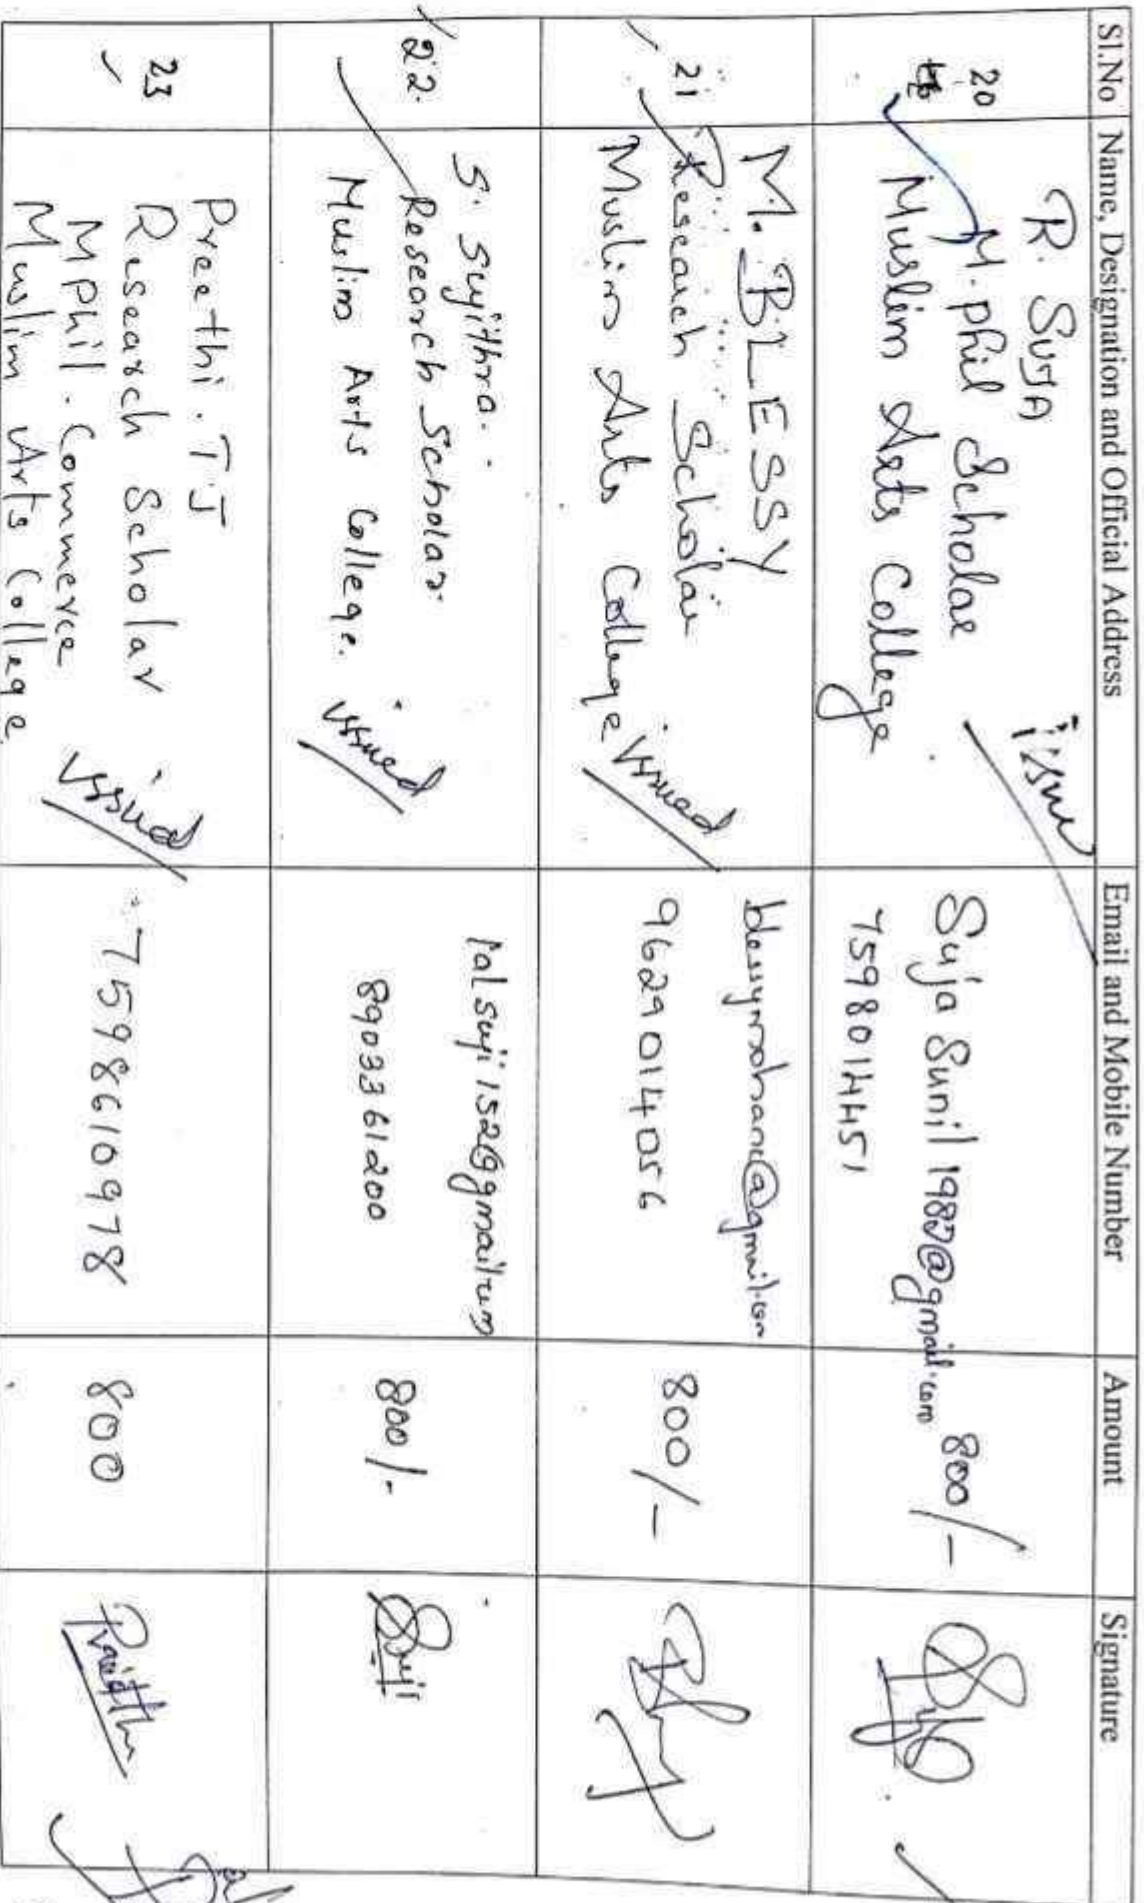 Sl.No Name, Designation and Official Address Email and Mobile Number Amount Signature
20
R. SUJA
M.phil Scholar
Muslim Arts College
issue
Suja Sunil 1980@gmail.com
7598014451
800/-
21
M. BLESSY
Research Scholar
Muslim Arts College
issued
blessymohan@gmail.com
9629014056
800/-
22.
S. Sujithra.
Research Scholar.
Muslim Arts College.
issued
8903361200
800/-
Suji
23
Preethi. T J
Research Scholar
MPhil. Commerce
Muslim Arts College
issued
7598610978
800
Preethi